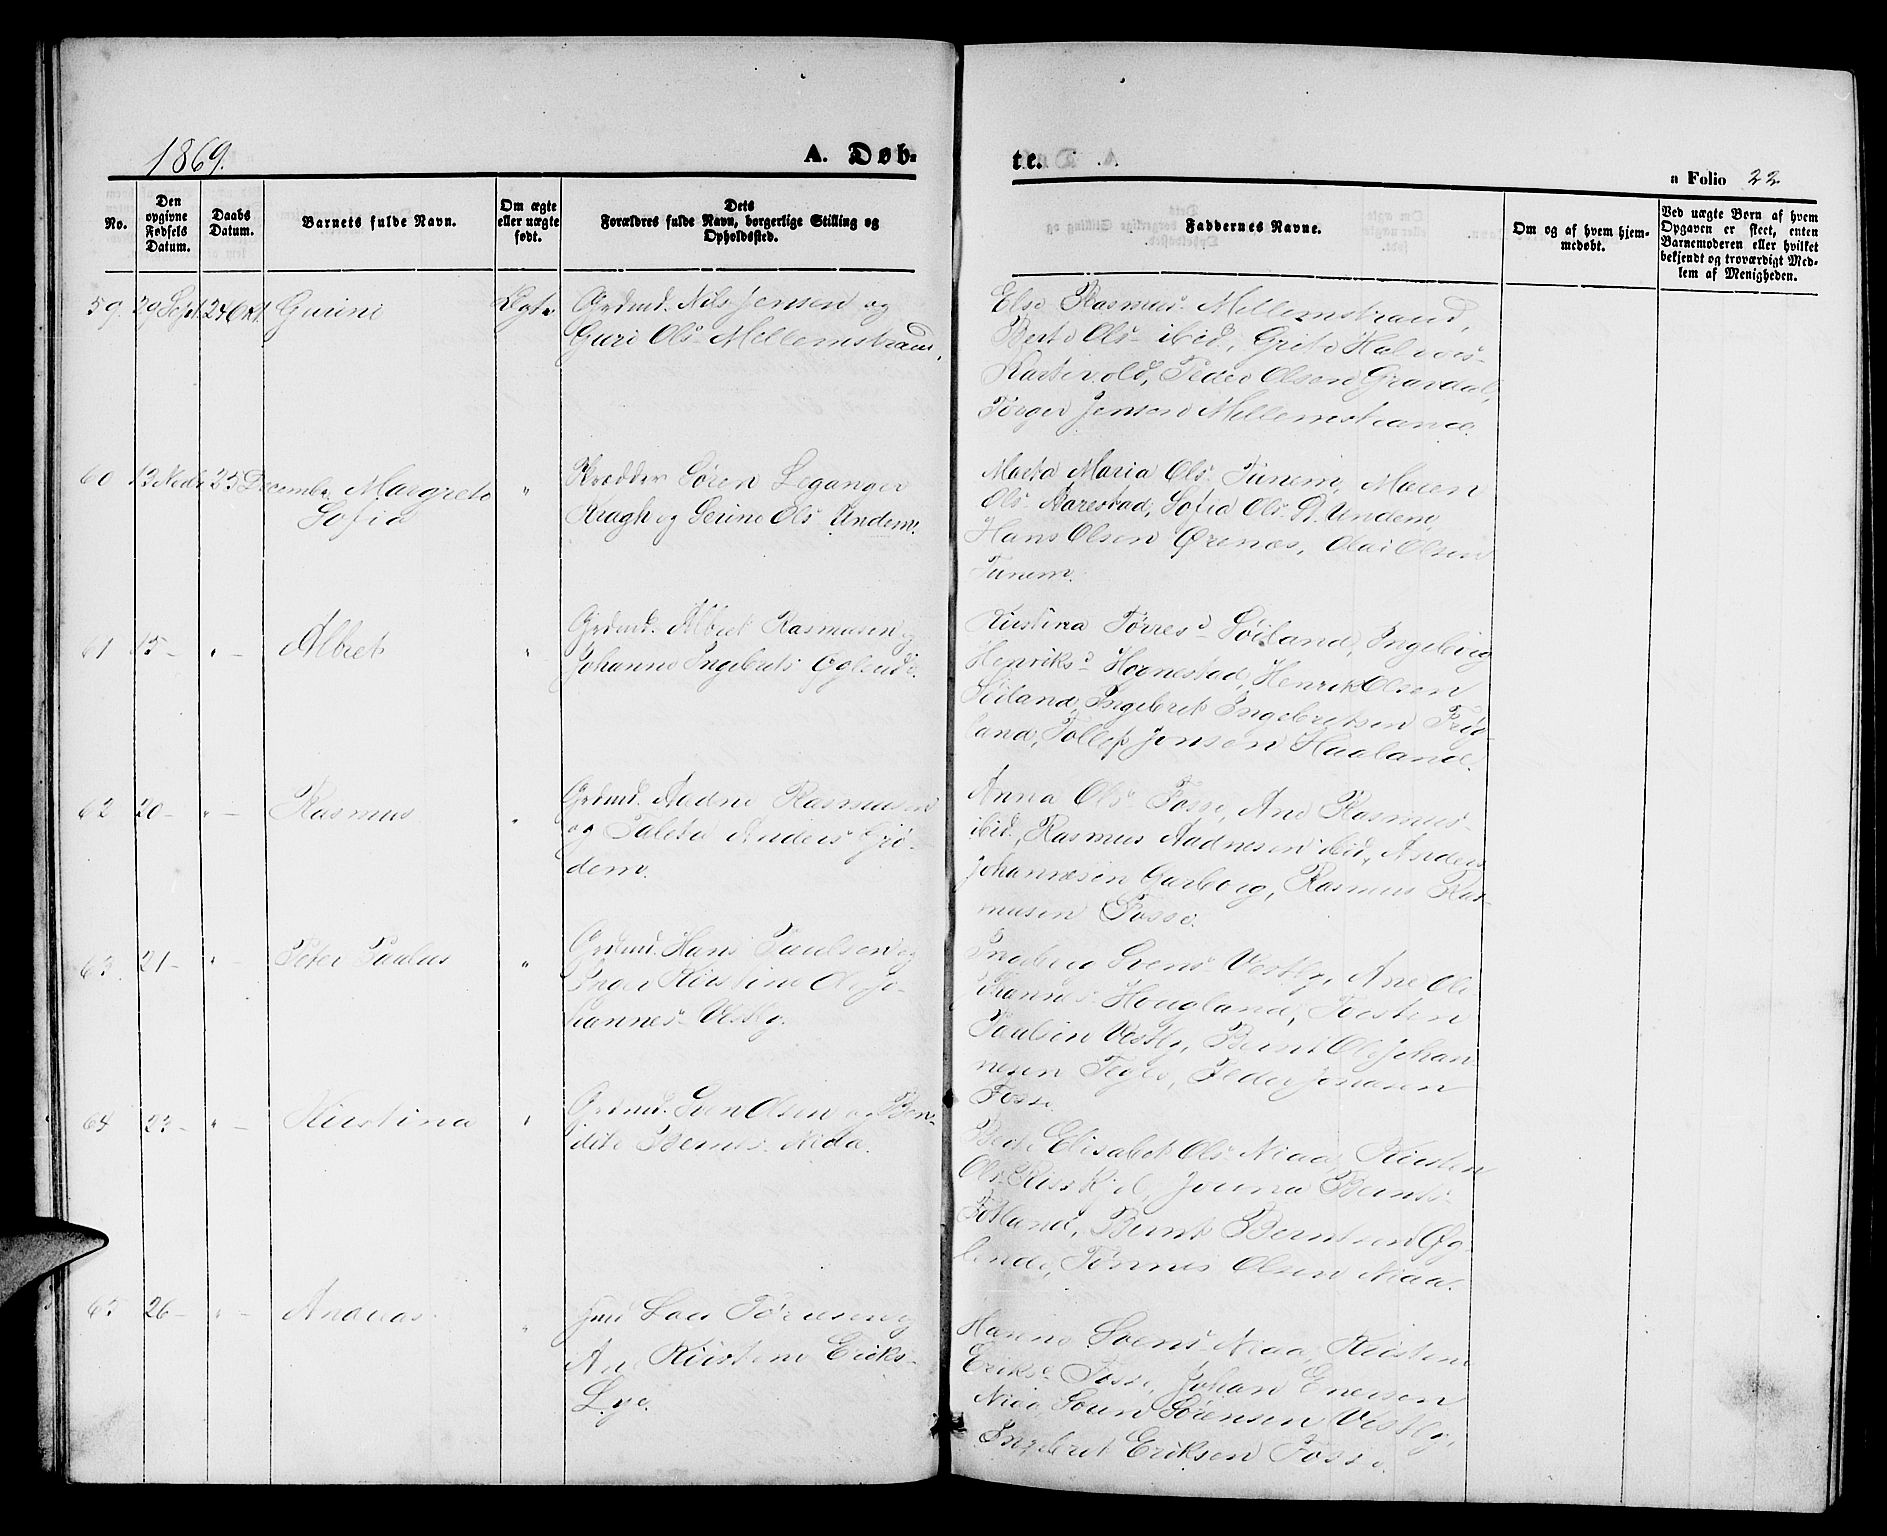 1869.
A. Døb-
te.
a Folio 22
No.
Den
opgivne
Fødsels
Datum.
Daabs
Datum.
Barnets fulde Navn.
Om ægte
eller uægte
født.
Dets
Forældres fulde Navn, borgerlige Stilling og
Opholdssted.
Faddernes Navne.
Om og af hvem hjem-
medøbt.
Ved uægte Børn af hvem
Opgaven er skeet, enten
Barnemoderen eller hvilket
bekjendt og troværdigt Med-
lem af Menigheden.
59. 29 Sept 24 Okt. Gurine Ægte Grdmd. Nils Jensen og
Guri Ols- Mellemstrand.
Else Rasmus- Mellemstrand,
Berte Ols- ibid, Grete Halvors-
Peder Olsen Gravdal,
Torger Jensen Mellemstrand.
60 13 25 Decembr. Margrete
Sofie
" Søren Leganger
Kragh og Serine Ols- Undem.
Marta Maria Ols- Tunem, Maren
Ols- Aarestad, Sofie Ols- St. Undem,
Hans Olsen Ørenæs, Olai Olsen
Tunem.
61 15 - " - Albret " Grdmd. Albret Rasmusen og
Johanne Ingebrets- Øglend.
Kirstina Tørres- Søiland, Ingebrig
Henriks- Hognestad, Henrik Olsen
Søiland, Ingebret Ingebretsen
land, Tollef Jensen Haaland.
62 20 - " - Rasmus " Grdmd. Aadne Rasmusen
og Talete Anders- Grø-
dem.
Anna Ols- Fosse, Ane Rasmus-
ibid, Rasmus Aadnesen ibid, Anders
Johannesen Garborg, Rasmus Ras-
musen Fosse.
63. 21 - " - Peter Paulus " Grdmd. Hans Paulsen og
Inger Kirstine Ole Jo-
hannes- Vestly.
Ingeborg Svens- Vestly, Ane Ole
Johannes- Hougland, Torsten
Paulsen Vestly, Bernt Ole Johan-
nesen Peder Jonasen
Fosse.
64 23 - " - Kirstina " Grdmd. Sven Olsen og Ben-
dite Bernts- Niaa.
Berte Elisabet Ols- Niaa, Kirsten
Ols- Jorina Bernts-
Fotland, Bernt Berntsen Øg-
lende, Tønnes Olsen Niaa.
65 26 - " - Andreas " Lars Tørresen og
Ane Kirstine Eriks-
Lye.
Hanne Svens- Niaa, Kirstine
Eriks- Fosse, Johan Enersen
Niaa, Søren Sørensen Vestly,
Ingebret Eriksen Fosse.